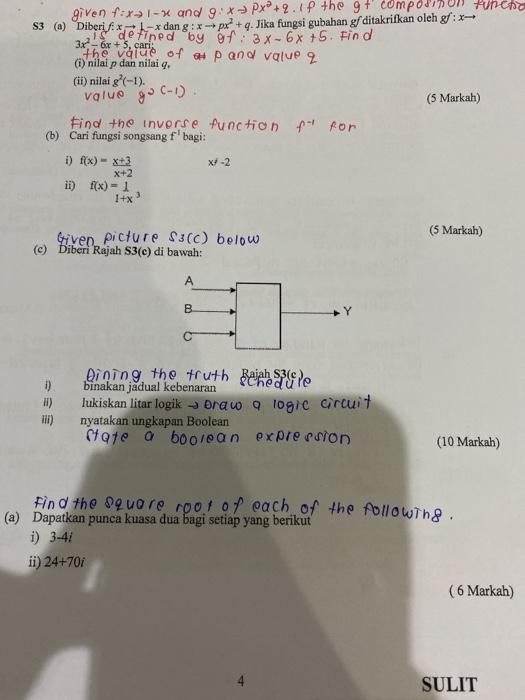 given f:x→1-x and g:x→px²+q. if the gf composition functio
S3 (a) Diberi f: x → 1 – x dan g : x → px² + q. Jika fungsi gubahan gf ditakrifkan oleh gf : x→
is defined by gf : 3x - 6x +5. Find
3x² – 6x + 5, cari:
the value of p and value q
(i) nilai p dan nilai q,
(ii) nilai g²(-1).
value g² (-1) .
(5 Markah)
Find the inverse function f⁻¹ for
(b) Cari fungsi songsang f¹ bagi:
i) f(x) = x+3 x≠ -2
x+2
ii) f(x) = 1
1+x³
(5 Markah)
Given picture S3(c) below
(c) Diberi Rajah S3(c) di bawah:
A
B
C
Y
Rajah S3(c)
Dining the truth schedule
i) binakan jadual kebenaran
ii) lukiskan litar logik → Draw a logic circuit
iii) nyatakan ungkapan Boolean
State a boolean expression
(10 Markah)
Find the square root of each of the following .
(a) Dapatkan punca kuasa dua bagi setiap yang berikut
i) 3-4i
ii) 24+70i
( 6 Markah)
4
SULIT